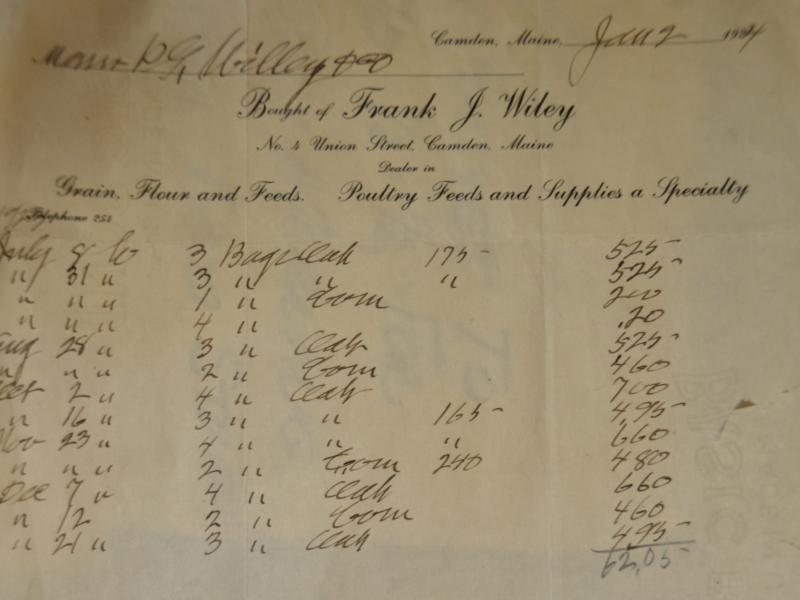 Camden, Maine, Jan 2 1924
P. G. Willey & Co
Bought of Frank J. Wiley
No. 4 Union Street, Camden, Maine
Dealer in
Grain, Flour and Feeds. Poultry Feeds and Supplies a Specialty
Telephone 251
July 8 to 3 Bags Oats 175 525
" 31 " 3 " " " 525
" " " 1 " Corn 200
" " " 4 " .20
Aug 28 " 3 " Oats 525
" " " 2 " Corn 460
Oct 2 " 4 " Oats 700
" 16 " 3 " " 165 495
Nov 23 " 4 " " " 660
" " " 2 " Corn 240 480
Dec 7 " 4 " Oats 660
" 12 2 " Corn 460
" 21 " 3 " Oats 495
62,05